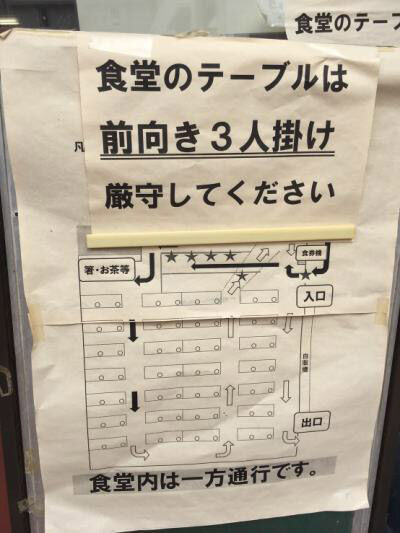 食堂のテーブ
食堂のテーブルは
前向き3人掛け
厳守してください
凡
箸・お茶等
★★★★
食券機
★
★
入口
自販機
出口
食堂内は一方通行です。